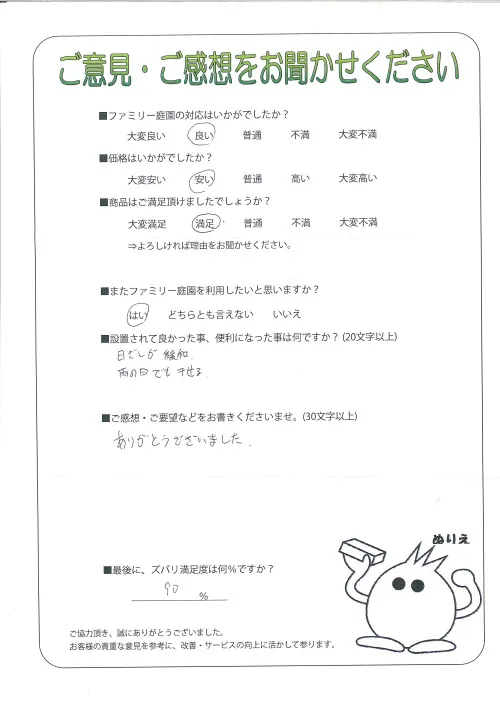 ご意見・ご感想をお聞かせください
■ファミリー庭園の対応はいかがでしたか？
大変良い 良い 普通 不満 大変不満
■価格はいかがでしたか？
大変安い 安い 普通 高い 大変高い
■商品はご満足頂けましたでしょうか？
大変満足 満足 普通 不満 大変不満
⇒よろしければ理由をお聞かせください。
■またファミリー庭園を利用したいと思いますか？
はい どちらとも言えない いいえ
■設置されて良かった事、便利になった事は何ですか？(20文字以上)
日ざしが緩和.
雨の日でも干せる.
■ご感想・ご要望などをお書きくださいませ。(30文字以上)
ありがとうございました.
ぬりえ
■最後に、ズバリ満足度は何％ですか？
90 %
ご協力頂き、誠にありがとうございました。
お客様の貴重な意見を参考に、改善・サービスの向上に活かして参ります。